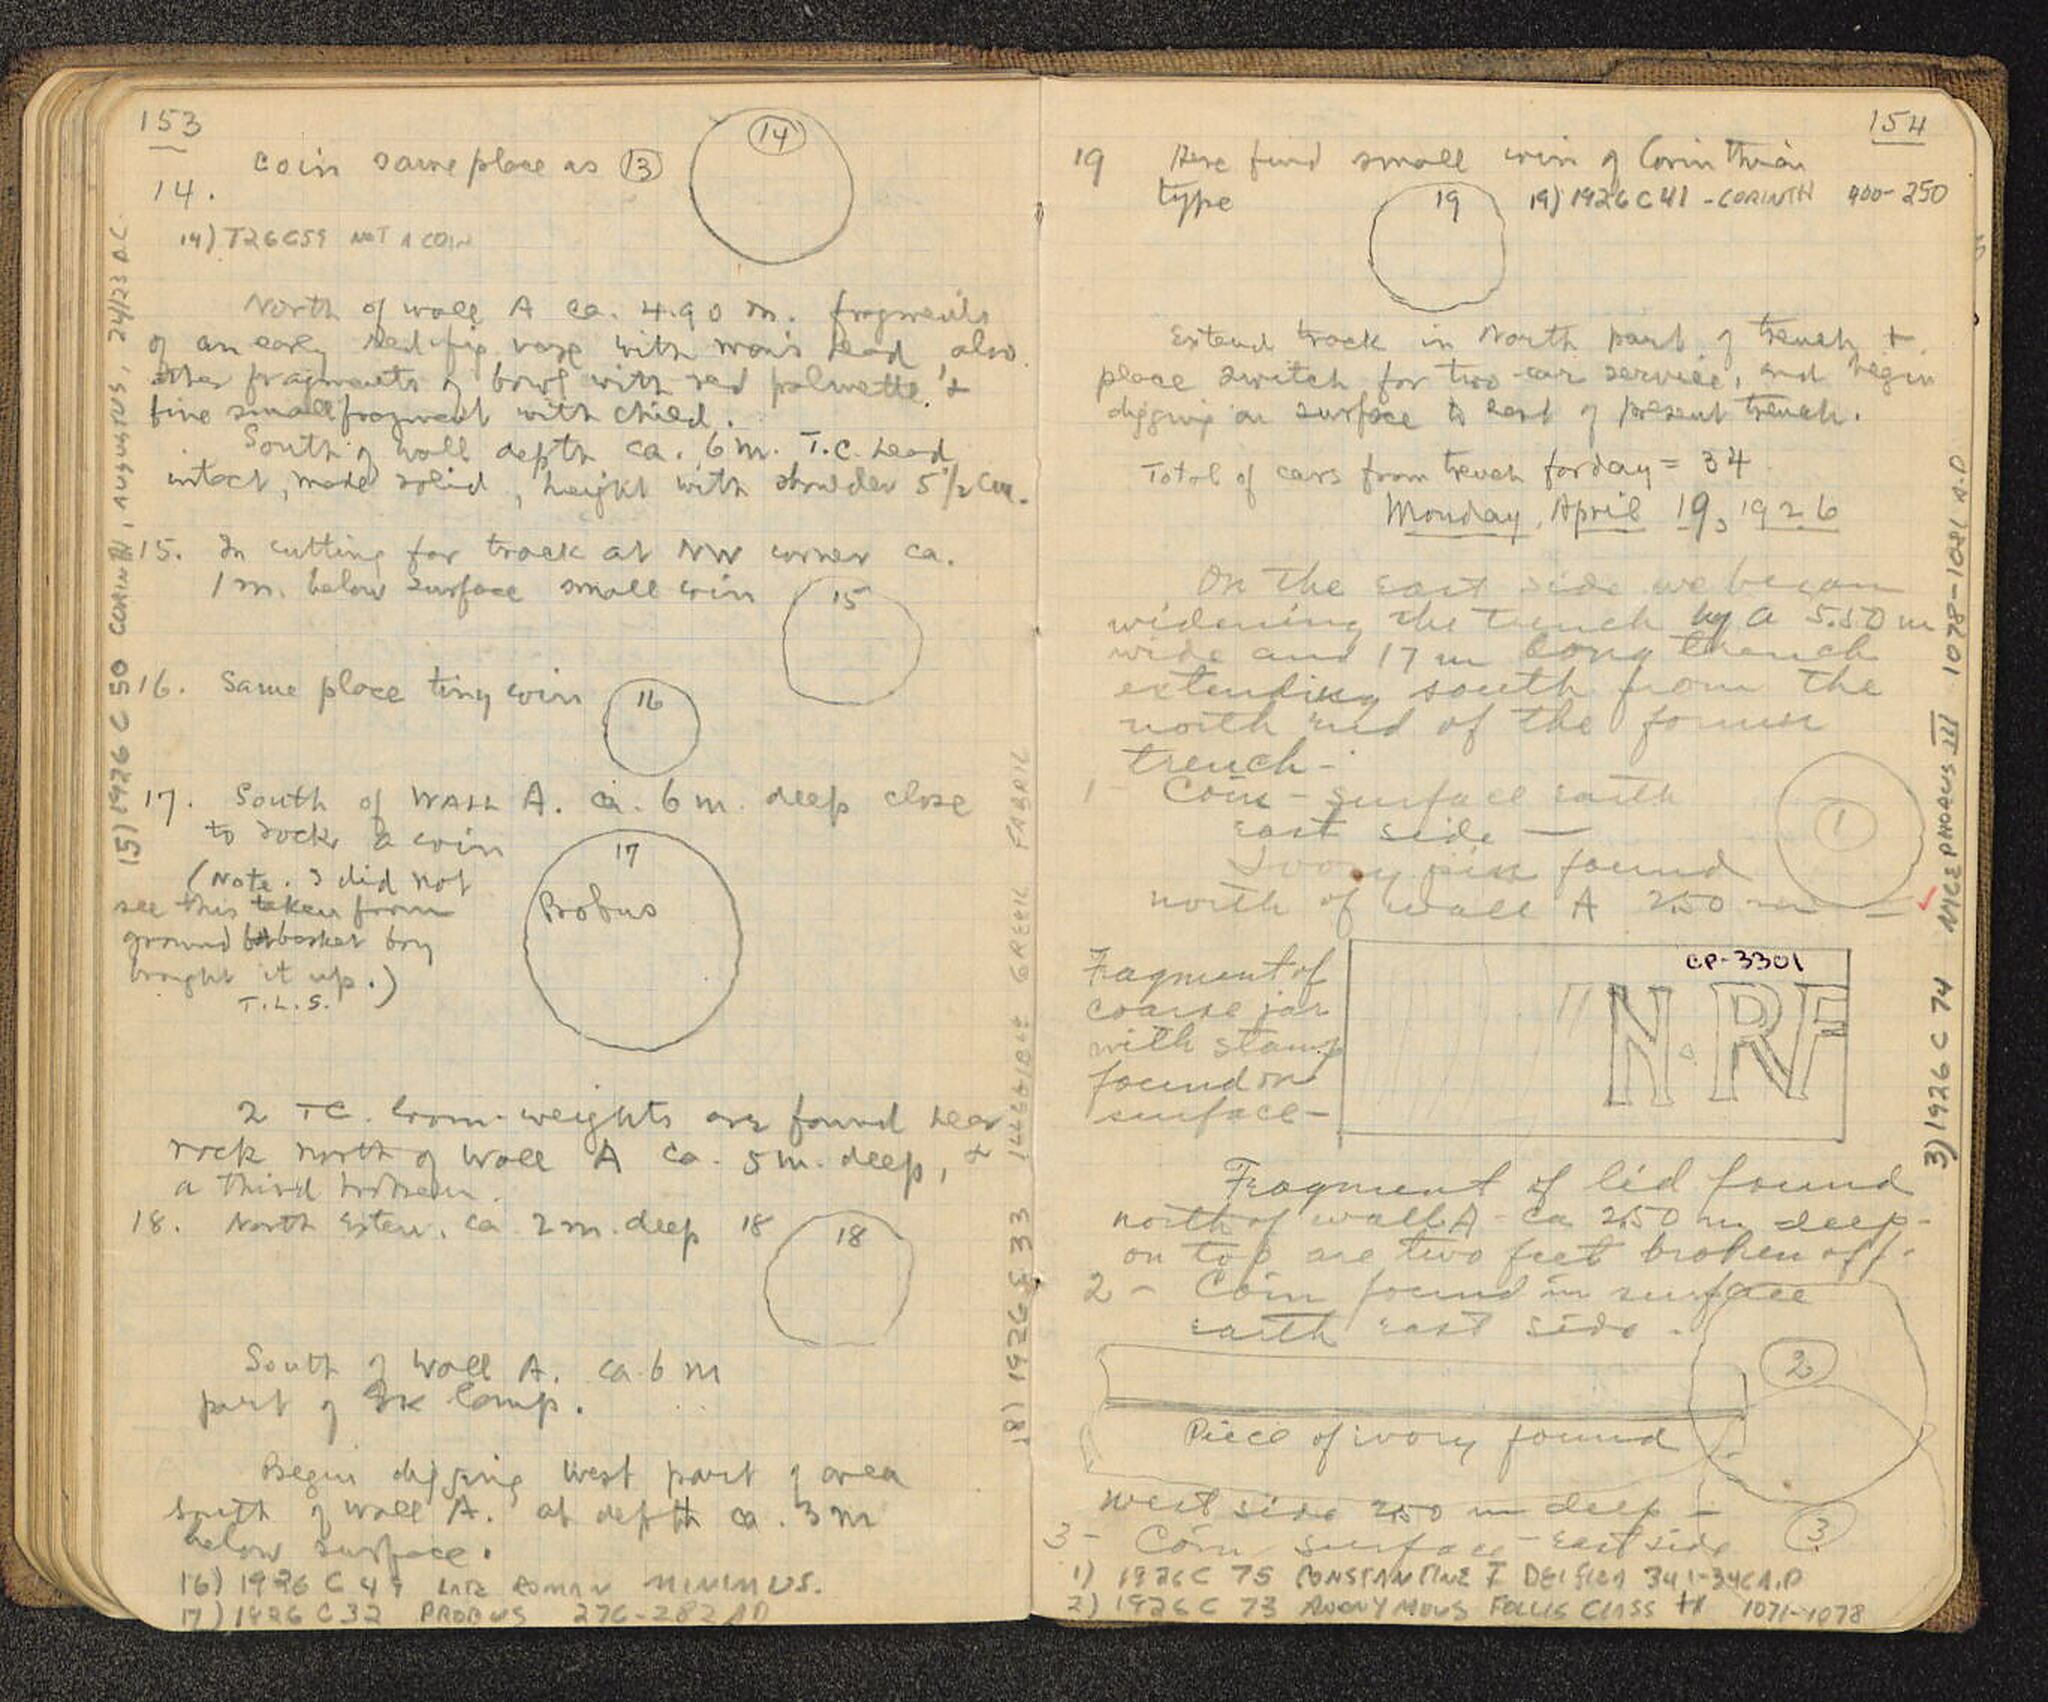 153
coin same place as 13
14
14.
14) T26 C59 NOT A COIN
North of wall A ca. 4.90 m. fragments
of an early red fig. vase with man's head, also
other fragments of bowl with red palmette, &
fine small fragment with child.
South of wall depth ca. 6 m. T.C. head
intact, made solid, height with shoulder 5 1/2 cm.
15. In cutting for track at NW corner ca.
1 m. below surface small coin
15
16. Same place tiny coin
16
17. South of WALL A. ca. 6 m. deep close
to rock a coin
17
Probus
(Note. I did not
see this taken from
ground but basket boy
brought it up.)
T.L.S.
2 TC. loom-weights are found near
rock north of Wall A ca. 5 m. deep, &
a third broken.
18. North Exten. ca 2 m. deep 18
18
South of Wall A. ca 6 m
part of Gk lamp.
Begin digging West part of area
south of Wall A. at depth ca. 3 m
below surface.
16) 1926 C 49 LATE ROMAN MINIMUS.
17) 1926 C 32 PROBUS 276-282 AD
15) 1926 C 50 CORINTH, AUGUSTUS,
18) 1926 33 ILLEGIBLE GREEK FABRIC
154
19 Here find small coin of Corinthian
type
19
19) 1926 C 41 - CORINTH 400-250
Extend track in North part of trench &
place switch for two car service, and begin
digging on surface to east of present trench.
Total of cars from trench for day = 34
Monday, April 19, 1926
On the east side we began
widening the trench by a 5.50 m
wide and 17 m long trench
extending south from the
north end of the former
trench-
1- Coin - surface earth
east side —
1
Ivory pin found
north of wall A 2.50 m —
Fragment of
coarse jar
with stamp
found on
surface-
CP-3301
N RF
Fragment of lid found
north of wall A - ca 2.50 m deep-
on top are two feet broken off.
2 - Coin found in surface
earth east side -
2
Piece of ivory found
west side 2.50 m deep -
3 - Coin surface - east side
3
1) 1926 C 75 CONSTANTINE I 341-346 A.D
2) 1926 C 73 ANONYMOUS FOLLIS CLASS 1071-1078
3) 1926 C 74 NICEPHORUS III 1078-1081 A.D